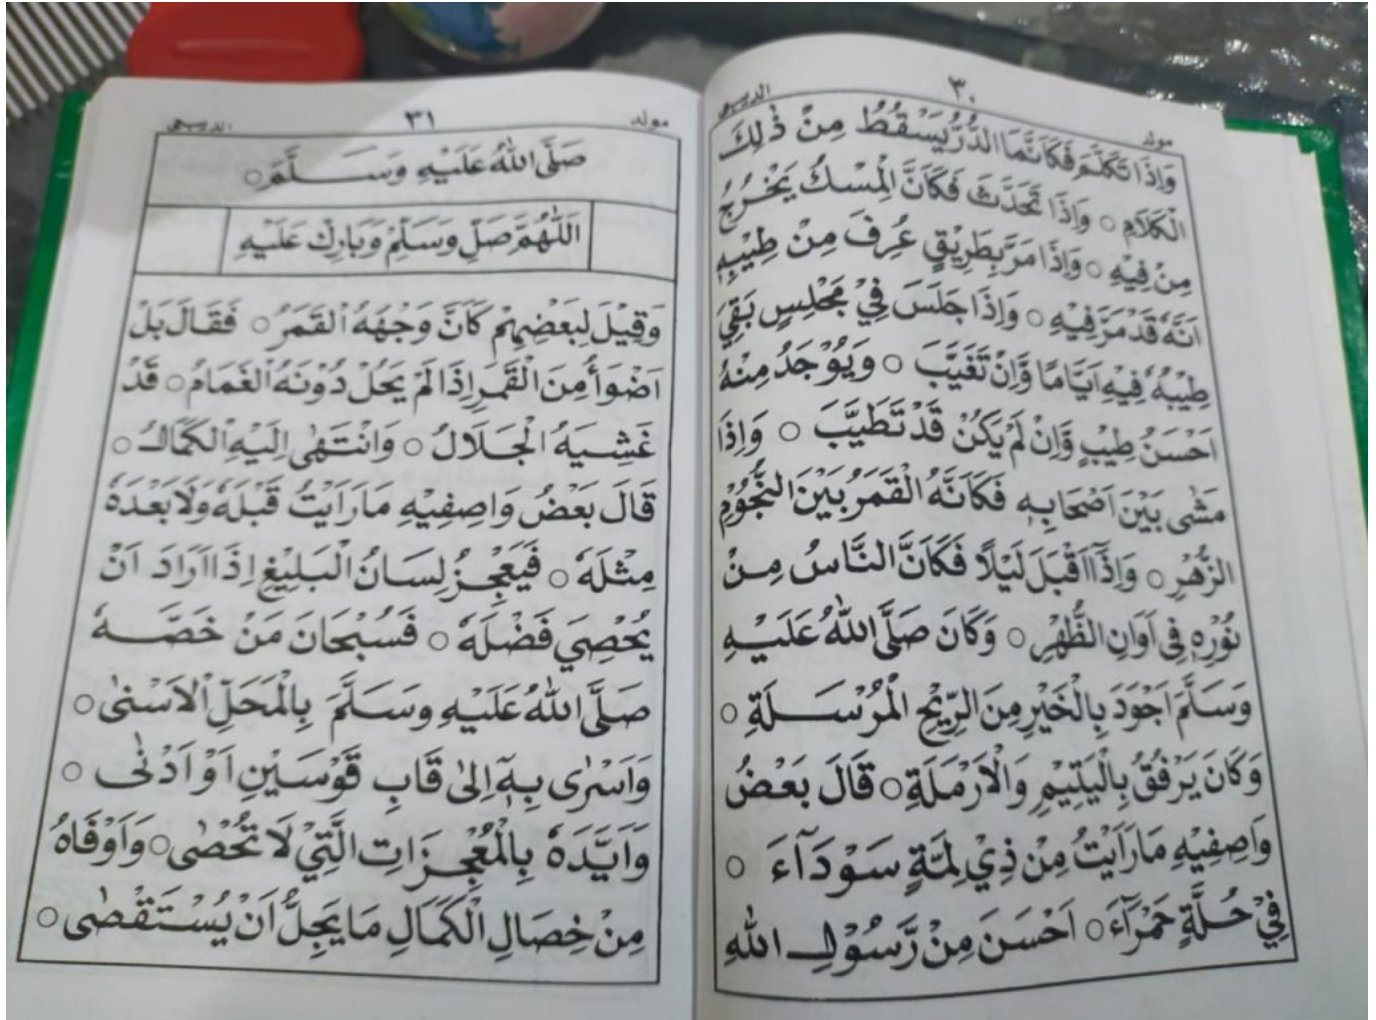 مولد ٣٠ الديبعي
وَاِذَا تَكَلَّمَ فَكَاَنَّمَا الدُّرُّ يَسْقُطُ مِنْ ذٰلِكَ
الْكَلَامِ ○ وَاِذَا تَحَدَّثَ فَكَاَنَّ الْمِسْكَ يَخْرُجُ
مِنْ فِيْهِ ○ وَاِذَا مَرَّ بِطَرِيْقٍ عُرِفَ مِنْ طِيْبِهٖ
اَنَّهٗ قَدْ مَرَّ فِيْهِ ○ وَاِذَا جَلَسَ فِيْ مَجْلِسٍ بَقِيَ
طِيْبُهٗ فِيْهِ اَيَّامًا وَّاِنْ تَغَيَّبَ ○ وَيُوْجَدُ مِنْهُ
اَحْسَنُ طِيْبٍ وَّاِنْ لَمْ يَكُنْ قَدْ تَطَيَّبَ ○ وَاِذَا
مَشٰى بَيْنَ اَصْحَابِهٖ فَكَاَنَّهُ الْقَمَرُ بَيْنَ النُّجُوْمِ
الزُّهْرِ ○ وَاِذَآ اَقْبَلَ لَيْلًا فَكَاَنَّ النَّاسُ مِنْ
نُوْرِهٖ فِى اَوَانِ الظُّهْرِ ○ وَكَانَ صَلَّى اللّٰهُ عَلَيْهِ
وَسَلَّمَ اَجْوَدَ بِالْخَيْرِ مِنَ الرِّيْحِ الْمُرْسَلَةِ ○
وَكَانَ يَرْفُقُ بِالْيَتِيْمِ وَالْاَرْمَلَةِ ○ قَالَ بَعْضُ
وَاصِفِيْهِ مَا رَاَيْتُ مِنْ ذِيْ لِمَّةٍ سَوْدَآءَ ○
فِيْ حُلَّةٍ حَمْرَآءَ ○ اَحْسَنَ مِنْ رَّسُوْلِ اللّٰهِ
مولد ٣١ الديبعي
صَلَّى اللّٰهُ عَلَيْهِ وَسَلَّمَ ○
اَللّٰهُمَّ صَلِّ وَسَلِّمْ وَبَارِكْ عَلَيْهِ
وَقِيْلَ لِبَعْضِهِمْ كَاَنَّ وَجْهَهُ الْقَمَرُ ○ فَقَالَ بَلْ
اَضْوَأُ مِنَ الْقَمَرِ اِذَا لَمْ يَحُلْ دُوْنَهُ الْغَمَامُ ○ قَدْ
غَشِيَهُ الْجَلَالُ ○ وَانْتَهٰى اِلَيْهِ الْكَمَالُ ○
قَالَ بَعْضُ وَاصِفِيْهِ مَا رَاَيْتُ قَبْلَهٗ وَلَا بَعْدَهٗ
مِثْلَهٗ ○ فَيَعْجِزُ لِسَانُ الْبَلِيْغِ اِذَا اَرَادَ اَنْ
يُحْصِيَ فَضْلَهٗ ○ فَسُبْحَانَ مَنْ خَصَّهٗ
صَلَّى اللّٰهُ عَلَيْهِ وَسَلَّمَ بِالْمَحَلِّ الْاَسْنٰى ○
وَاَسْرٰى بِهٖٓ اِلٰى قَابِ قَوْسَيْنِ اَوْ اَدْنٰى ○
وَاَيَّدَهٗ بِالْمُعْجِزَاتِ الَّتِيْ لَا تُحْصٰى ○ وَاَوْفَاهُ
مِنْ خِصَالِ الْكَمَالِ مَا يَجِلُّ اَنْ يُسْتَقْصٰى ○